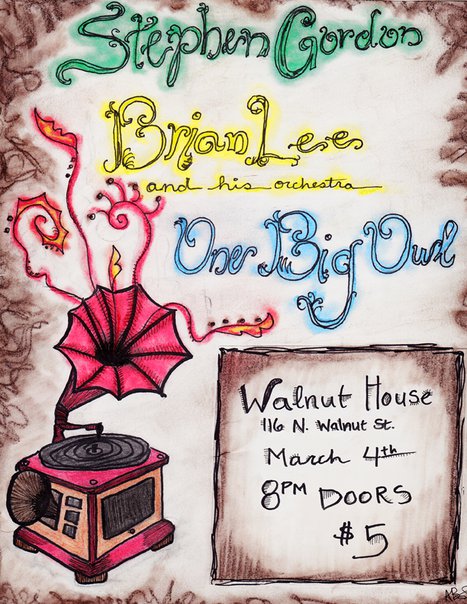 Stephen Gordon
Brian Lee
and his orchestra
One Big Owl
Walnut House
116 N. Walnut St.
March 4th
8PM DOORS
$5